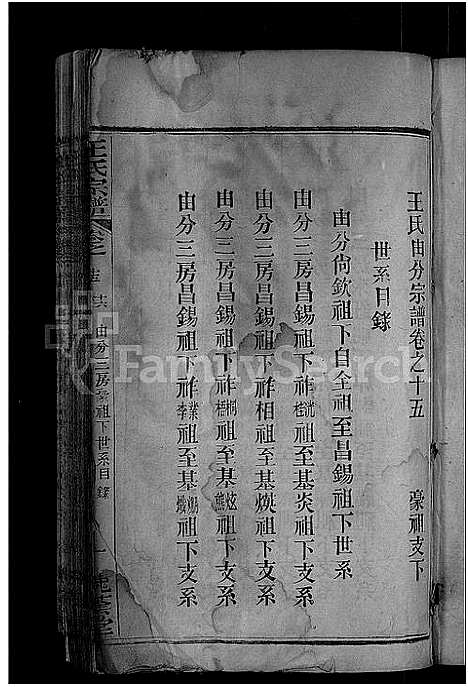 王氏由分宗譜卷之十五　豪祖支下
世系目錄
由分尙欽祖下自全祖至昌錫祖下世系
由分三房昌錫祖下祚桂祖至基炎祖下支系
由分三房昌錫祖下祚相祖至基煐祖下支系
由分三房昌錫祖下祚桐梧祖至基炫熊祖下支系
由分三房昌錫祖下祚業李祖至基煅祖下支系
王氏宗譜
卷之
由分三房祖下世系目錄
一
FamilySearch